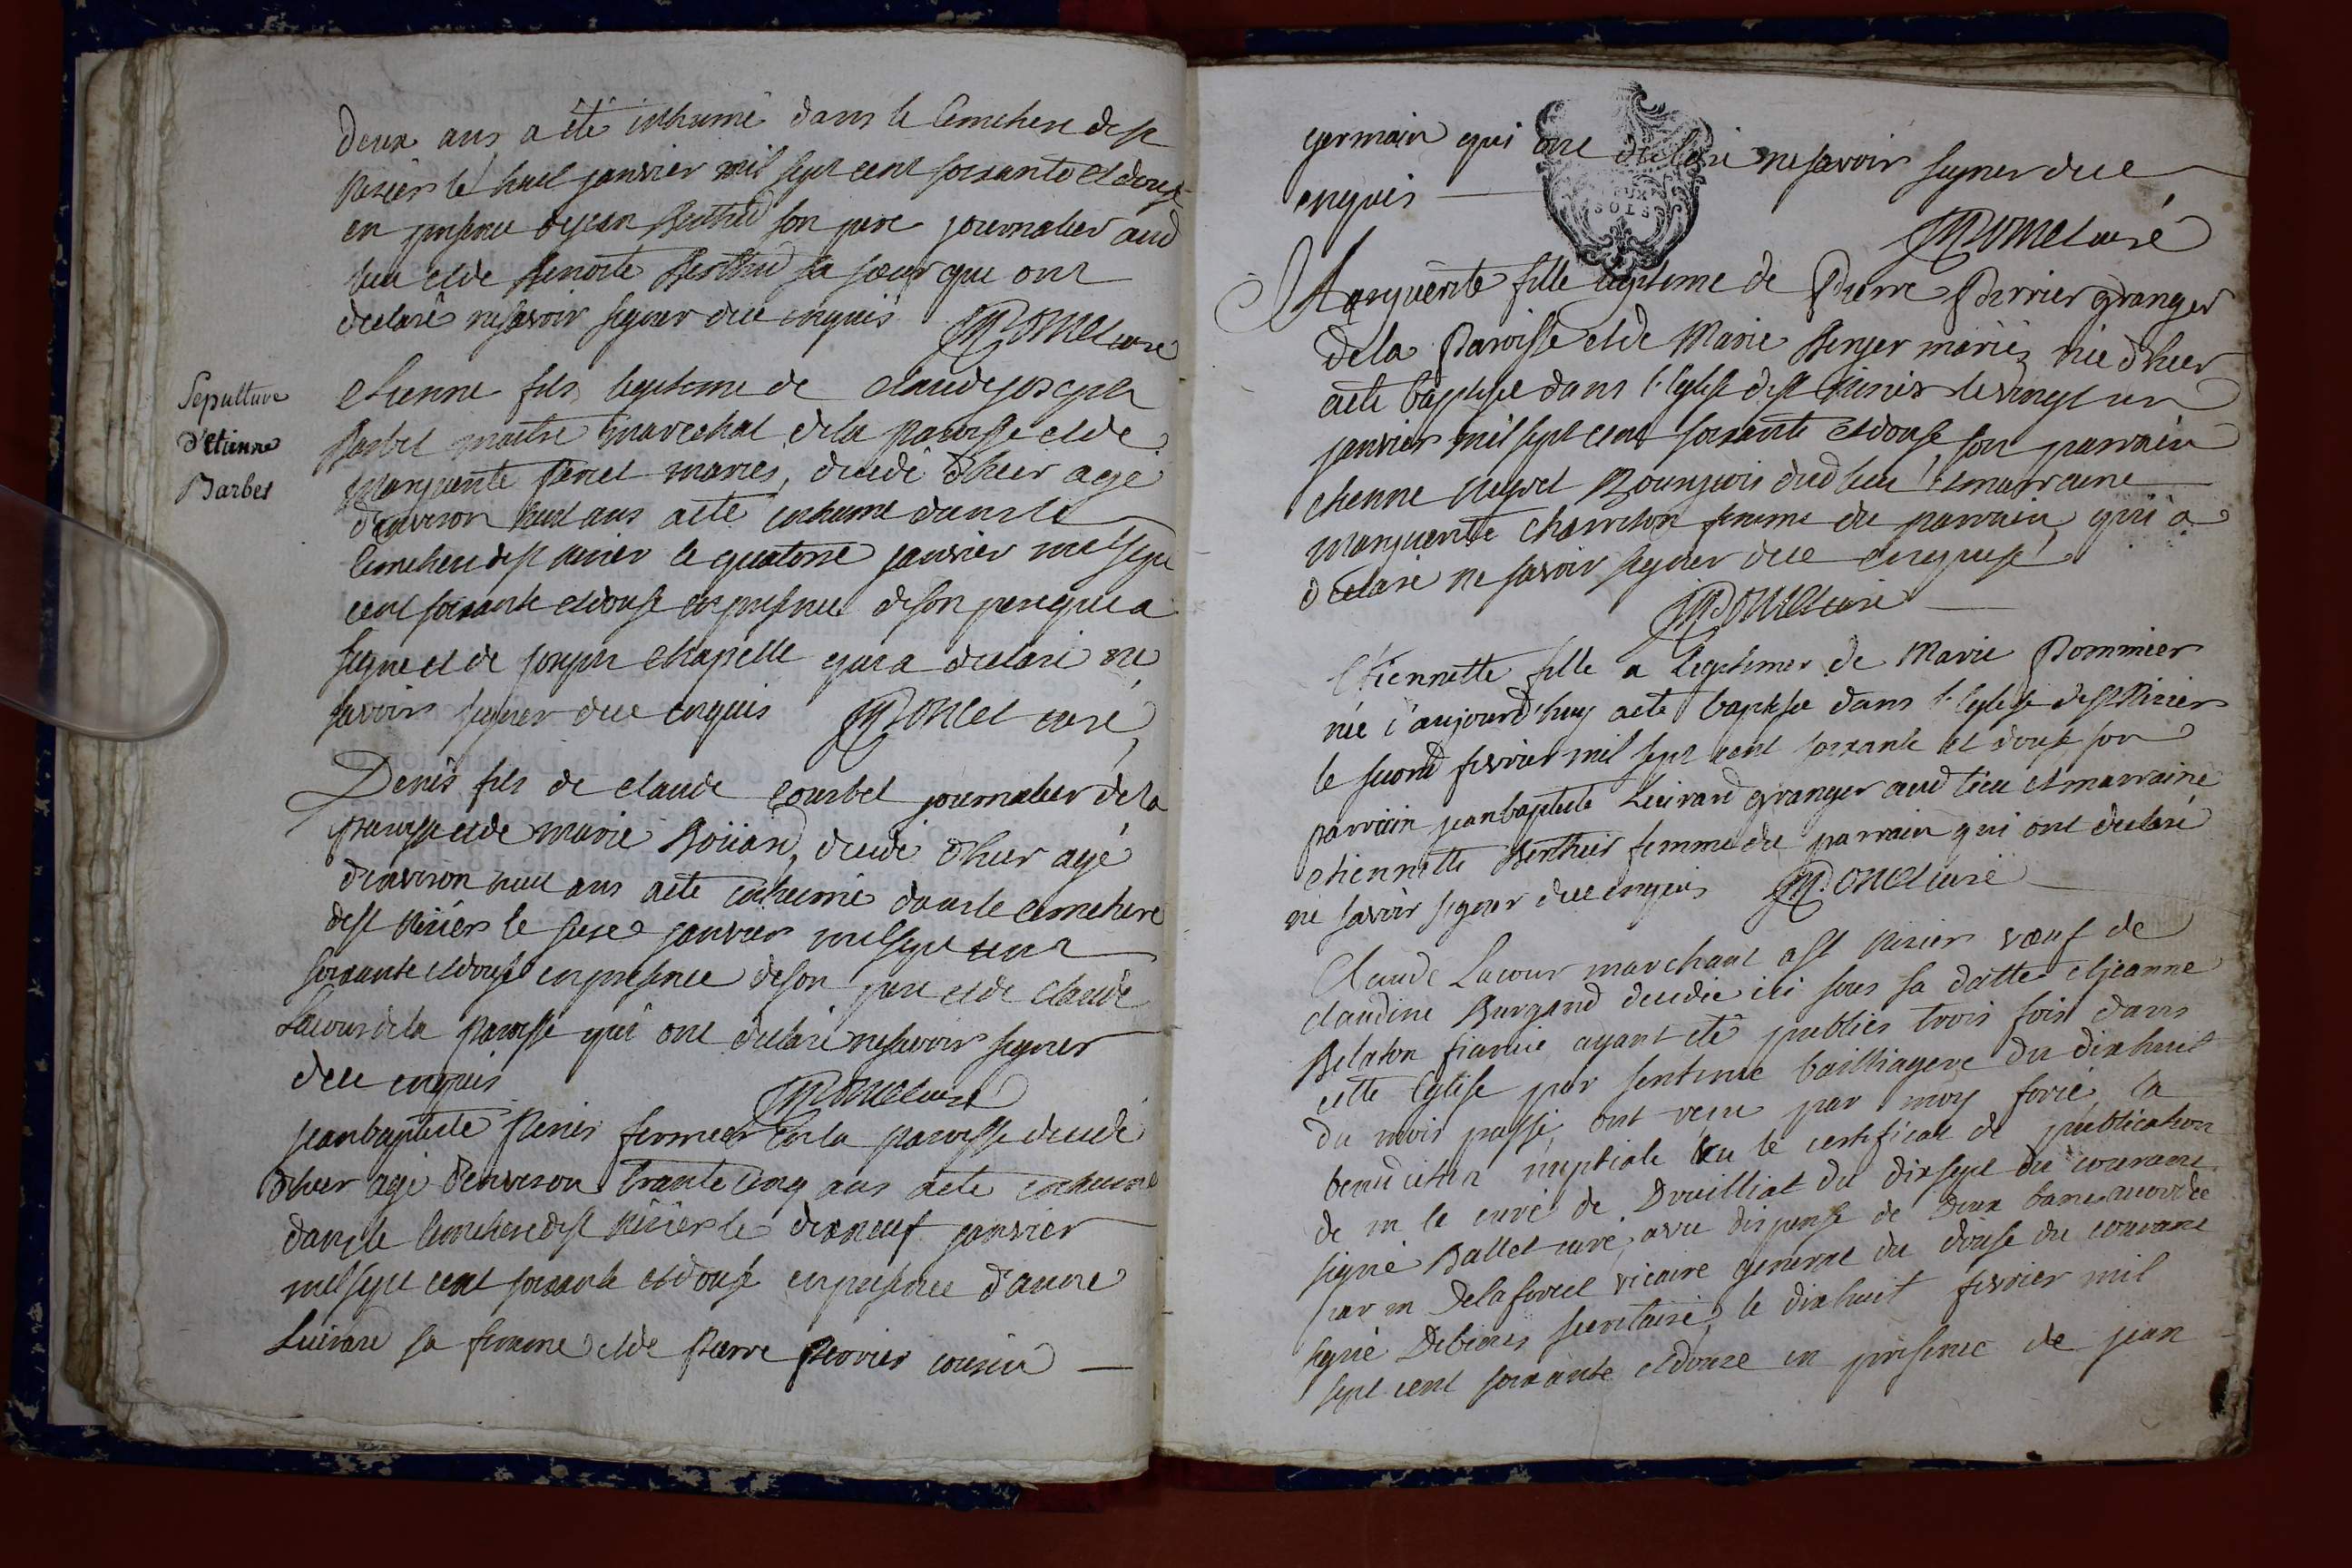 deux ans a été inhumé dans le Cimetiere de st
Risier le huit janvier mil sept cent soixante et douse
en presence de jean Berthud son pere journalier aud
lieu et de Benoite Berthud sa sœur qui ont
declaré ne savoir signer de ce enquis curé
Sepulture
d'Etienne
Barbet
etienne fils legitime de claude joseph
Barbet maitre marechal de la paroisse et de
Marguerite mariés, decedé d'hier agé
d'environ huit ans a ete inhumé dans le
Cimetiere de st Risier le quatorse janvier mil sept
cent soixante et douse en presence de son pere qui a
signé et de joseph Chapelle qui a declaré ne
savoir signer de ce enquis curé
Denis fils de claude Courbet journalier de la
paroisse et de marie decedé d'hier agé
d'environ huit ans a ete inhumé dans le cimetiere
de st Risier le seise janvier mil sept cent
soixante et douse en presence de son pere et de claude
Lacour de la paroisse qui ont declaré ne savoir signer
de ce enquis curé
jean baptiste Perrier fermier en la paroisse decedé
d'hier agé d'environ trante cinq ans a ete inhumé
dans le Cimetiere de st Risier le dix neuf janvier
mil sept cent soixante et douse en presence d'anne
sa femme et de pierre Perrier cousin
germain qui ont declaré ne savoir signer de ce
enquis
SOLS
curé
Marguerite fille legitime de Pierre Perrier granger
de la Paroisse et de Marie Berger mariés née d'hier
a ete baptisee dans l'Eglise de st Risier le vingt un
janvier mil sept cent soixante et douse, son parrain
etienne Bourgeois dud lieu et marraine
marguerite Charreton femme du parrain qui a
declaré ne savoir signer de ce enquise
curé
Etiennette fille a legitimer de Marie Pommier
née d'aujourd'huy a ete baptisee dans l'Eglise de st Risier
le second fevrier mil sept cent soixante et douse son
parrain jean baptiste granger aud lieu et marraine
etiennette Berthier femme du parrain qui ont declaré
ne savoir signer de ce enquis curé
Claude Lacour marchant a st Risier vœuf de
claudine Burgand decedée ici sous sa datte et jeanne
Belaton fiancée ayant été publiés trois fois dans
cette Eglise par sentence bailliagere du dix huit
du mois passé, ont recu par moy la
benediction nuptiale vu le certificat de publication
de m le curé de Drouilliat du dix sept du courant
signé Ballet curé, avec dispense de deux bans accordée
par m Delaforest vicaire general du douse du courant
signé secretaire, le dix huit fevrier mil
sept cent soixante et douze en presence de jean